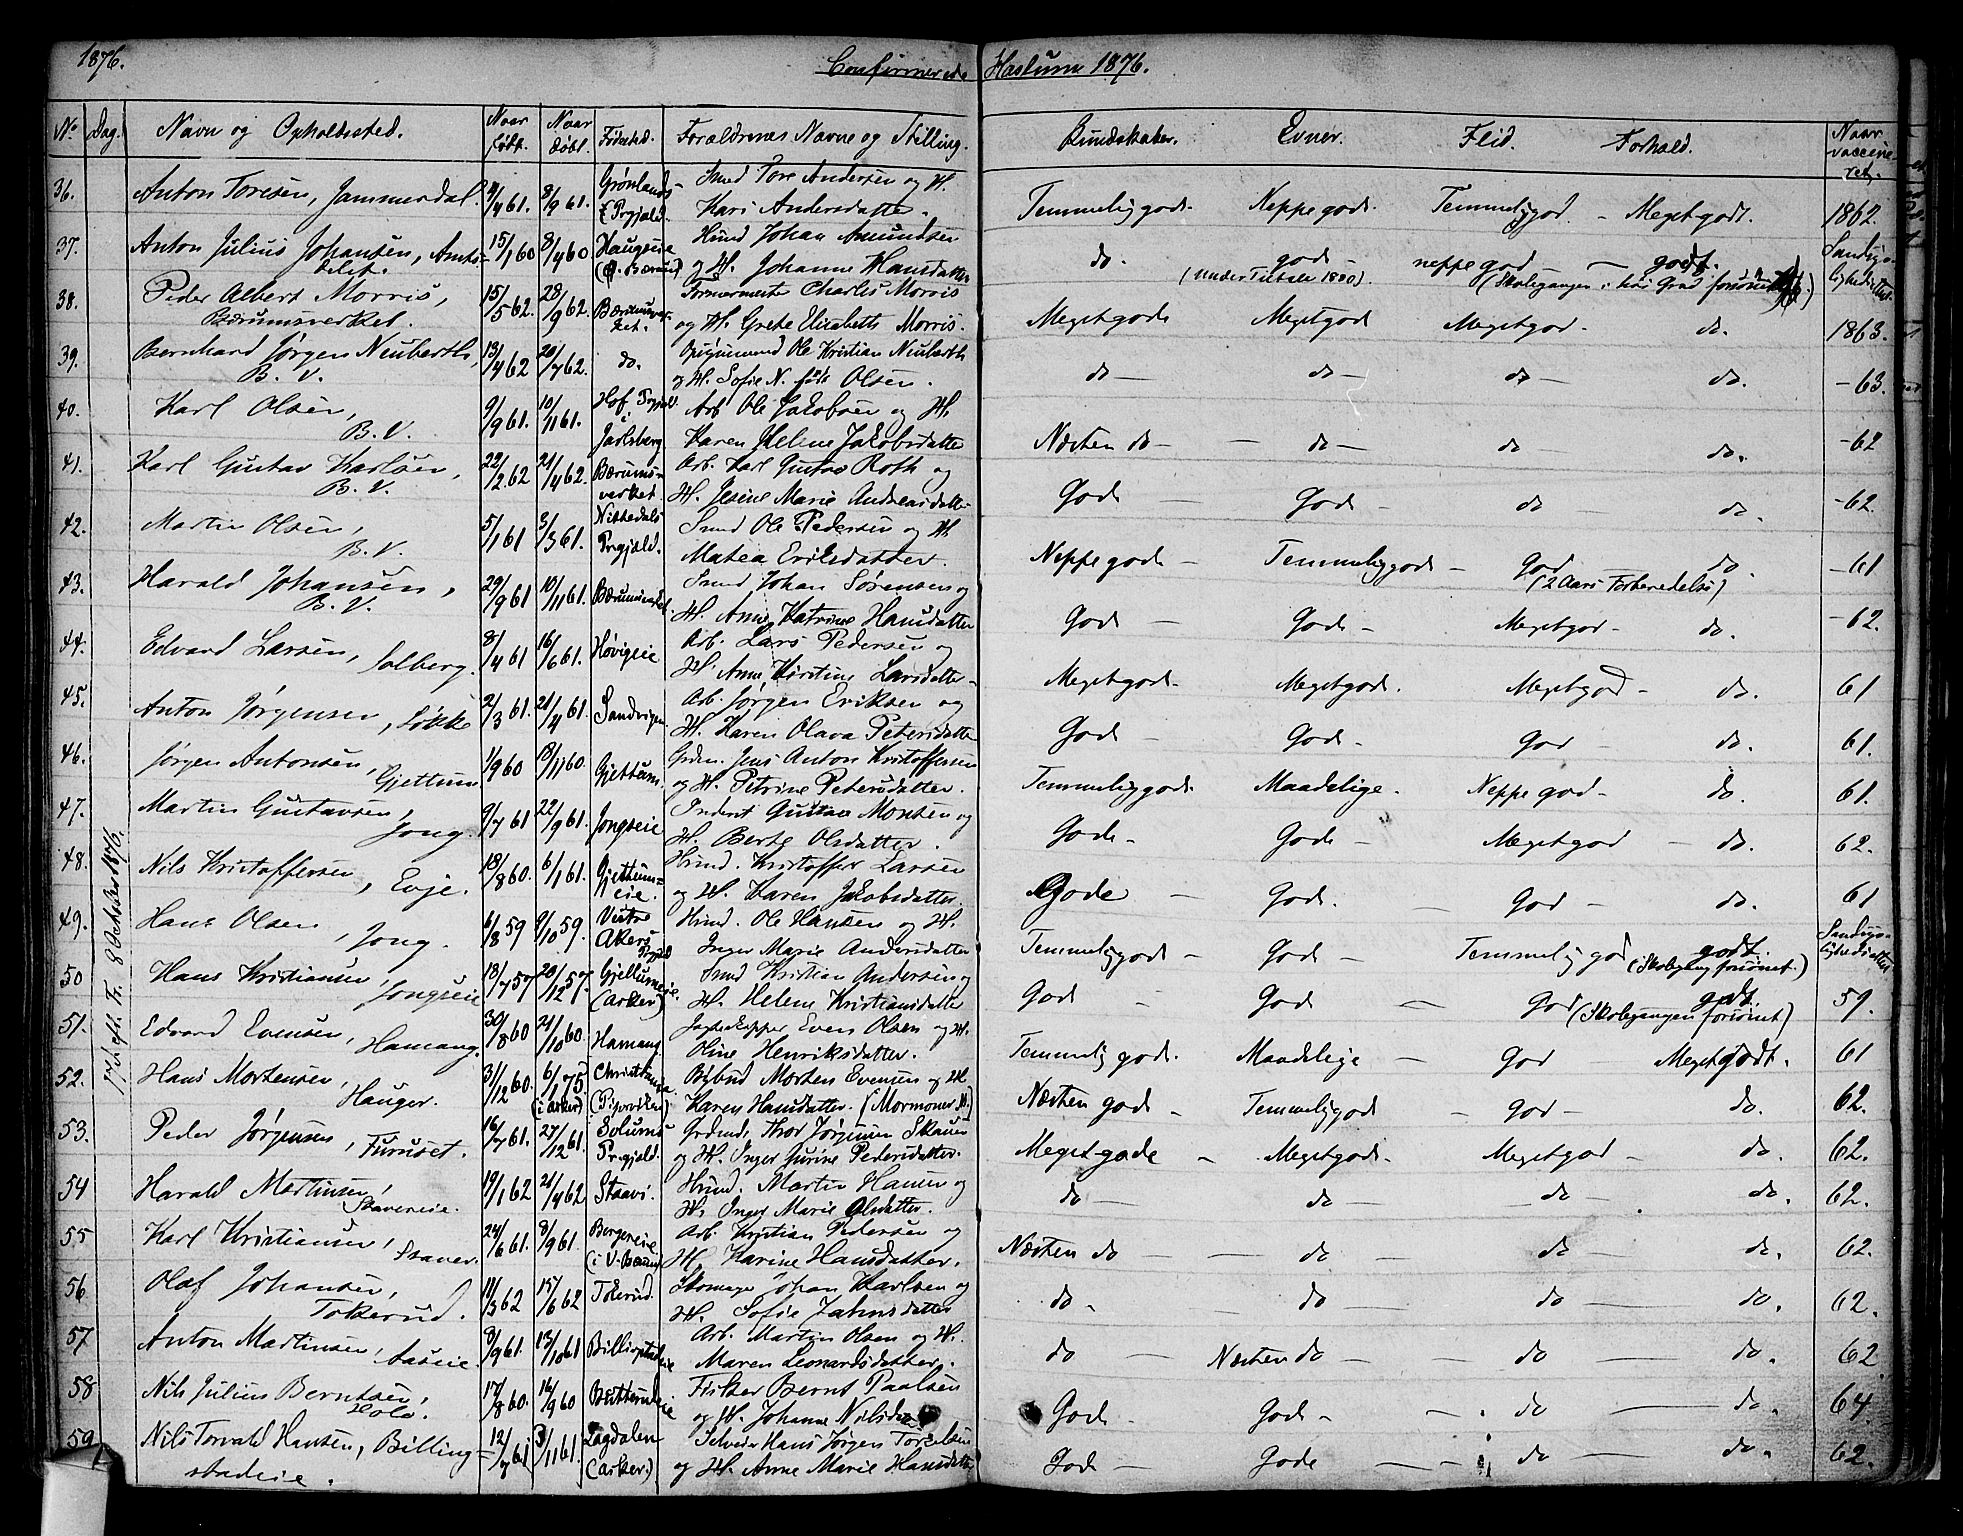 1876. Confirmerede Haslum 1876.
No Dag. Navn og Opholdssted. Naar født. Naar døbt. Fødested. Forældrenes Navne og Stilling. Kundskaber. Evner. Flid. Forhold. Naar vaccineret.
17de eft. Tr. 8 October 1876.
36. Anton Toresen, Jammerdal. 4/4 61. 8/9 61. Grønlands Prgjæld. Smed Tore Andersen og H.
Kari Andersdatter. Temmelig gode. Neppe gode. Temmelig god. - Meget godt. 1862.
37. Anton Julius Johansen, Amts- 15/1 60 8/4 60 Haugseie Husmd Johan Amundsen
delet. (V. Bærum) og H. Johanne Hansdatter do. gode neppe god - godt.
(under Tiltale 1880). (Skolegangen i høi Grad forsømt)
38. Peder Albert Morris, 15/5 62. 28/9 62. Bærumsver- Formermester Charles Morris
Bærumsverket. ket. og H. Grete Elisabeth Morris. Meget gode Meget god Meget god - do. 1863.
39. Bernhard Jørgen Neuberth, 13/4 62 20/7 62. do. Opsynsmand Ole Kristian Neuberth
B. V. og H. Sofie N. født Olsen. do - do - do - do. - 63.
40. Karl Olsen, 9/9 61. 10/11 61. Hof Prgjæld i Arb. Ole Jakobsen og H.
B. V. Jarlsberg Karen Helene Jakobsdatter Næsten do - - do - do do. - 62
41. Karl Gustav Karlsen, 22/2 62 21/4 62. Bærums- Arb. Karl Gustav Roth og
B. V. verket. H. Jesine Marie Andreasdatter Gode - Gode - do do. - 62.
42. Martin Olsen, 5/1 61 3/3 61. Nittedals Smed Ole Pedersen og H.
B. V. Prgjæld. Matea Eriksdatter. Neppe gode Temmelig gode - God do. - 61
(2 Aars Forberedelse)
43. Harald Johansen, 29/9 61 10/11 61. Bærumsverket. Smed Johan Sørensen og
B. V. H. Anne Katrine Hansdatter Gode - Gode - Meget god - do. - 62.
44. Edvard Larsen, Solberg. 8/4 61 16/6 61. Høvigseie Arb. Lars Pedersen og
H. Anne Kirstine Larsdatter Meget gode. Meget gode. Meget god - do. 61
45. Anton Jørgensen, Løkke 2/3 61. 21/4 61. Sandvigen Arb. Jørgen Eriksen og
H. Karen Olava Petersdatter Gode - Gode - god - do. 61.
46. Jørgen Antonsen, Gjettum. 1/9 60 18/11 60. Gjettum. Grdm. Jens Anton Kristoffersen
og H. Petrine Petersdatter. Temmelig gode. Maadelige. Neppe god - do. 61.
47. Martin Gustavsen, Jong. 9/7 61 22/9 61. Jongseie Inderst Gustav Monsen og
H. Berte Olsdatter. Gode - Gode - Meget god - do. 62.
48. Nils Kristoffersen, Evje. 18/8 60. 6/1 61. Gjettums- Husmd. Kristoffer Larsen
eie. og H. Karen Jakobsdatter. Gode - Gode. - god - do. 61
49. Hans Olsen, Jong. 6/8 59 9/10 59. Vestre Husmd. Ole Hansen og H.
Akers Prgjæld Inger Marie Andersdatter Temmelig gode - Gode - Temmelig god godt.
(Skolegang forsømt.)
50 Hans Kristiansen, Jongseie 18/7 57 20/12 57. Gjettumseie. Smed Kristian Andersen og
(Asker) H. Helene Kristiansdatter God - God - God godt. 59.
(Skolegangen forsømt)
51. Edvard Evensen, Hamang. 30/8 60 21/10 60. Hamang Jagteskipper Even Olsen og H.
Oline Henriksdatter. Temmelig gode. Maadelige - God Meget godt. 61
52. Hans Mortensen, Hauger. 31/12 60. 6/1 75 Christiania Bisbud Morten Evensen og H.
(i Asker) (Pipervigen) Karen Hansdatter. (Mormoner M.) Næsten gode - Temmelig gode - god - do. 62.
53. Peder Jørgensen, Furuset. 16/7 61. 27/12 61. Solums Grdmd. Thor Jørgensen Skauen
Prgjæld. og H. Inger Gurine Pedersdatter. Meget gode - Meget gode - Meget god - do. 62.
54 Harald Martinsen, 19/1 62 21/4 62. Staavi. Husmd. Martin Hansen og
H. Inger Marie Olsdatter. do - do do - do. 62.
55 Karl Kristiansen, 24/6 61. 8/9 61. Bergseie Arb. Kristian Pedersen og
(i V. Bærum) H. Karine Hansdatter. Næsten do - - do - do - do. 62.
56 Olaf Johansen, 11/3 62 15/6 62 Tokerud. Skomager Johan Karlsen og
Tokerud. H. Sofie Jahnsdatter do - do do - do. 62.
57 Anton Martinsen, Aaseie. 8/9 61. 13/10 61 Billingstadeie Arb. Martin Olsen og H.
Maren Leonardsdatter. do - Næsten do - do - do. 62
58 Nils Julius Berntsen, 17/8 60. 16/9 60 Fisker Bernt Paulsen
Holo. og H. Johanne Nilsdtr Gode - Gode - - do - do. 64.
59 Nils Torvald Hansen, Billing- 12/7 61 3/11 61. Lagdalen Selveier Hans Jørgen Torkelsen
stadeie. (Asker.) og H. Anne Marie Hansdatter Gode - Gode - - do - do. 62.